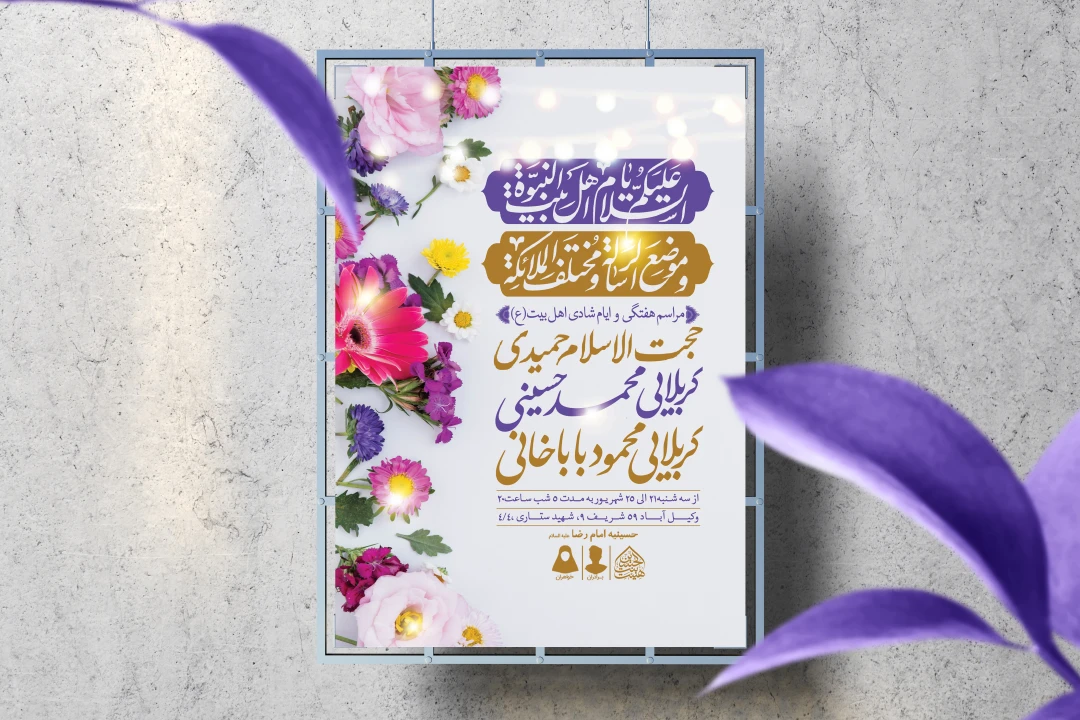 السلام علیکم یا اهل بیت النبوة
و موضع الرسالة و مختلف الملائکة
مراسم هفتگی و ایام شادی اهل بیت(ع)
حجت الاسلام حمیدی
کربلایی محمد حسینی
کربلایی محمود باباخانی
از سه شنبه ۲۱ الی ۲۵ شهریور به مدت ۵ شب ساعت ۲۰
وکیل آباد ۵۹ شریف ۹، شهید ستاری ۴/۴،
حسینیه امام رضا علیه السلام
برادران
خواهران